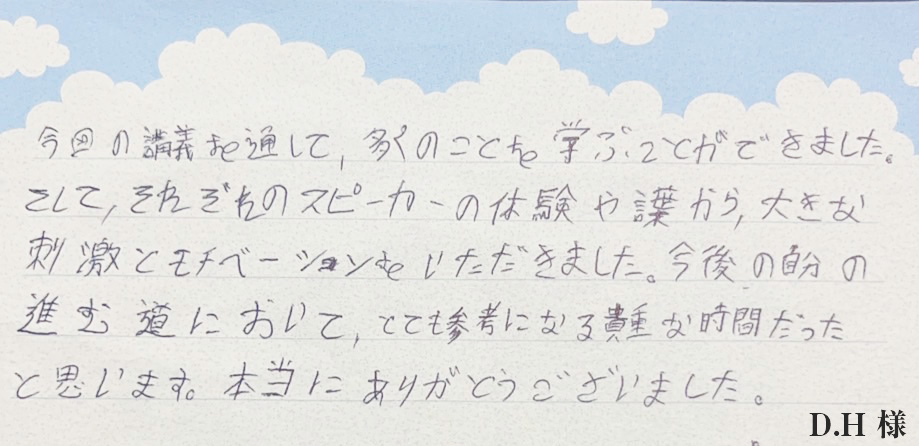 今回の講義を通して,多くのことを学ぶことができました。
そして,それぞれのスピーカーの体験や言葉から,大きな
刺激とモチベーションをいただきました。今後の自分の
進む道において,とても参考になる貴重な時間だった
と思います。本当にありがとうございました。
D.H 様